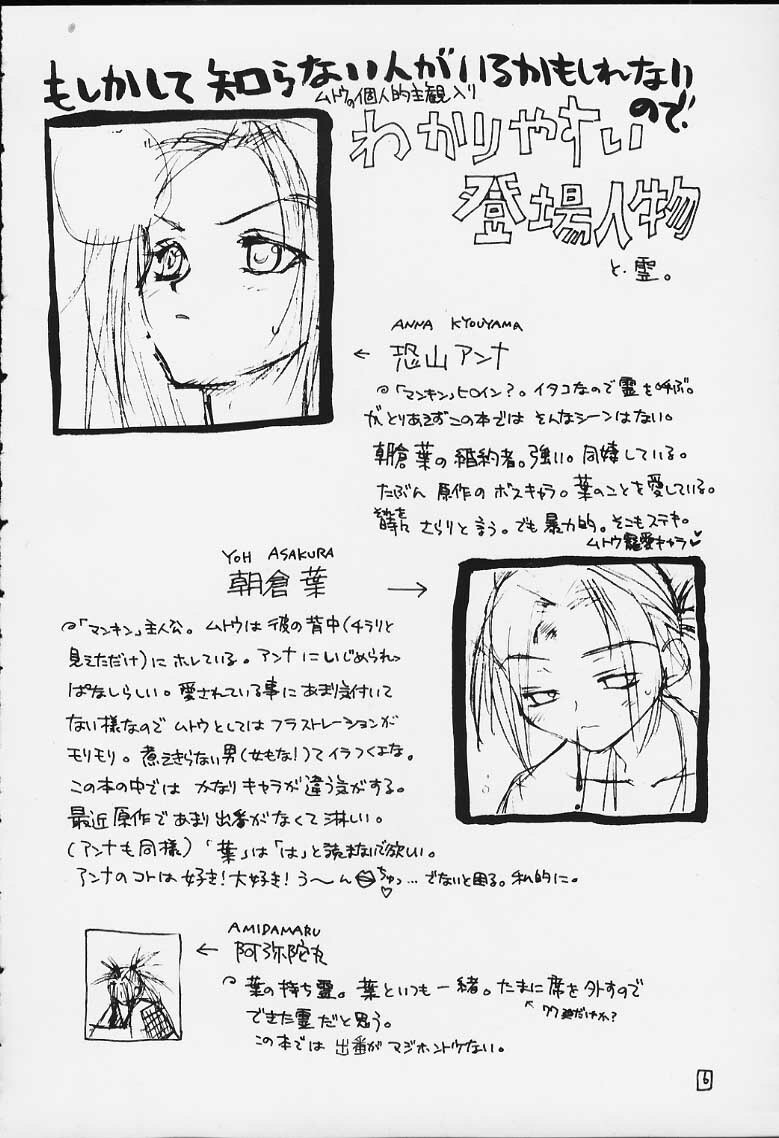 もしかして知らない人がいるかもしれない
ので
ムトウの個人的主観入り
わかりやすい
登場人物
と・霊。
ANNA KYOUYAMA
← 恐山アンナ
「マンキン」ヒロイン?。イタコなので霊を呼ぶ。
がとりあえずこの本では そんなシーンはない。
朝倉葉の婚約者。強い。同棲している。
たぶん 原作のボスキャラ。葉のことを愛している。
それを
時に さらりと言う。でも暴力的。そこもステキ。
ムトウ寵愛キャラ♥
YOH ASAKURA
朝倉 葉 →
「マンキン」主人公。ムトウは彼の背中(チラリと
見えただけ)にホレている。アンナにいじめられっ
ぱなしらしい。愛されている事にあまり気付いて
ない様なのでムトウとしてはフラストレーションが
モリモリ。煮えきらない男(女もな!)てイラつくよな。
この本の中では かなりキャラが違う気がする。
最近原作であまり出番がなくて淋しい。
(アンナも同様)「葉」は「は」と読まないで欲しい。
アンナのコトは好き!大好き!う〜ん ちゅっ♡…でないと困る。私的に。
AMIDAMARU
← 阿弥陀丸
葉の持ち霊。葉といつも一緒。たまに席を外すので
できた霊だと思う。
この本では 出番がマジホントウない。
6